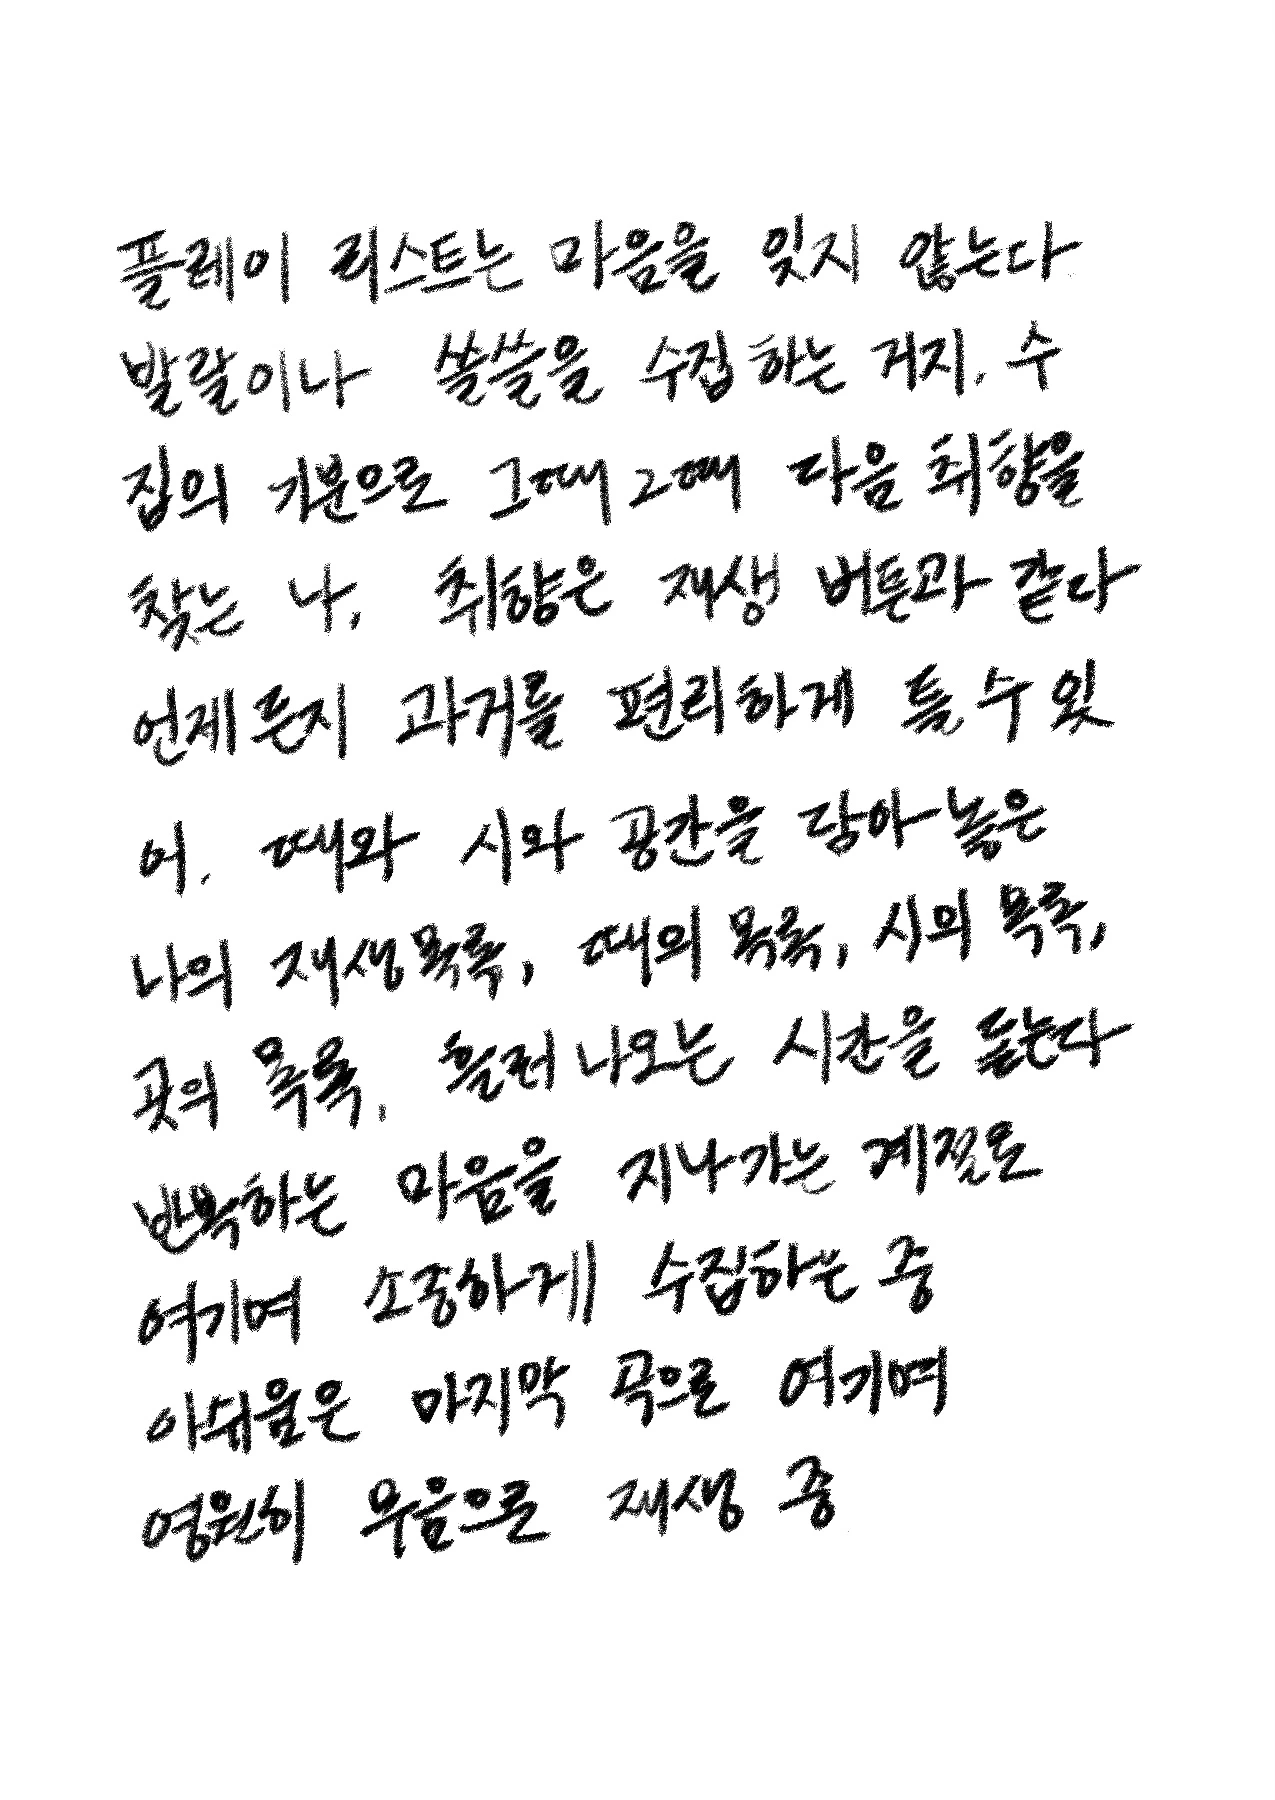 플레이 리스트는 마음을 잊지 않는다
발랄이나 쓸쓸을 수집하는 거지. 수
집의 기분으로 그때그때 다음 취향을
찾는 나, 취향은 재생 버튼과 같다
언제든지 과거를 편리하게 틀 수 있
어. 때와 시와 공간을 담아 놓은
나의 재생목록, 때의 목록, 시의 목록,
곳의 목록, 흘러나오는 시간을 듣는다
반복하는 마음을 지나가는 계절로
여기며 소중하게 수집하는 중
아쉬움은 마지막 곡으로 여기며
영원히 무음으로 재생 중